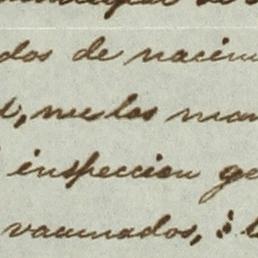 dos de nacim
, nulos man
inspeccion ge
vacunados, i l